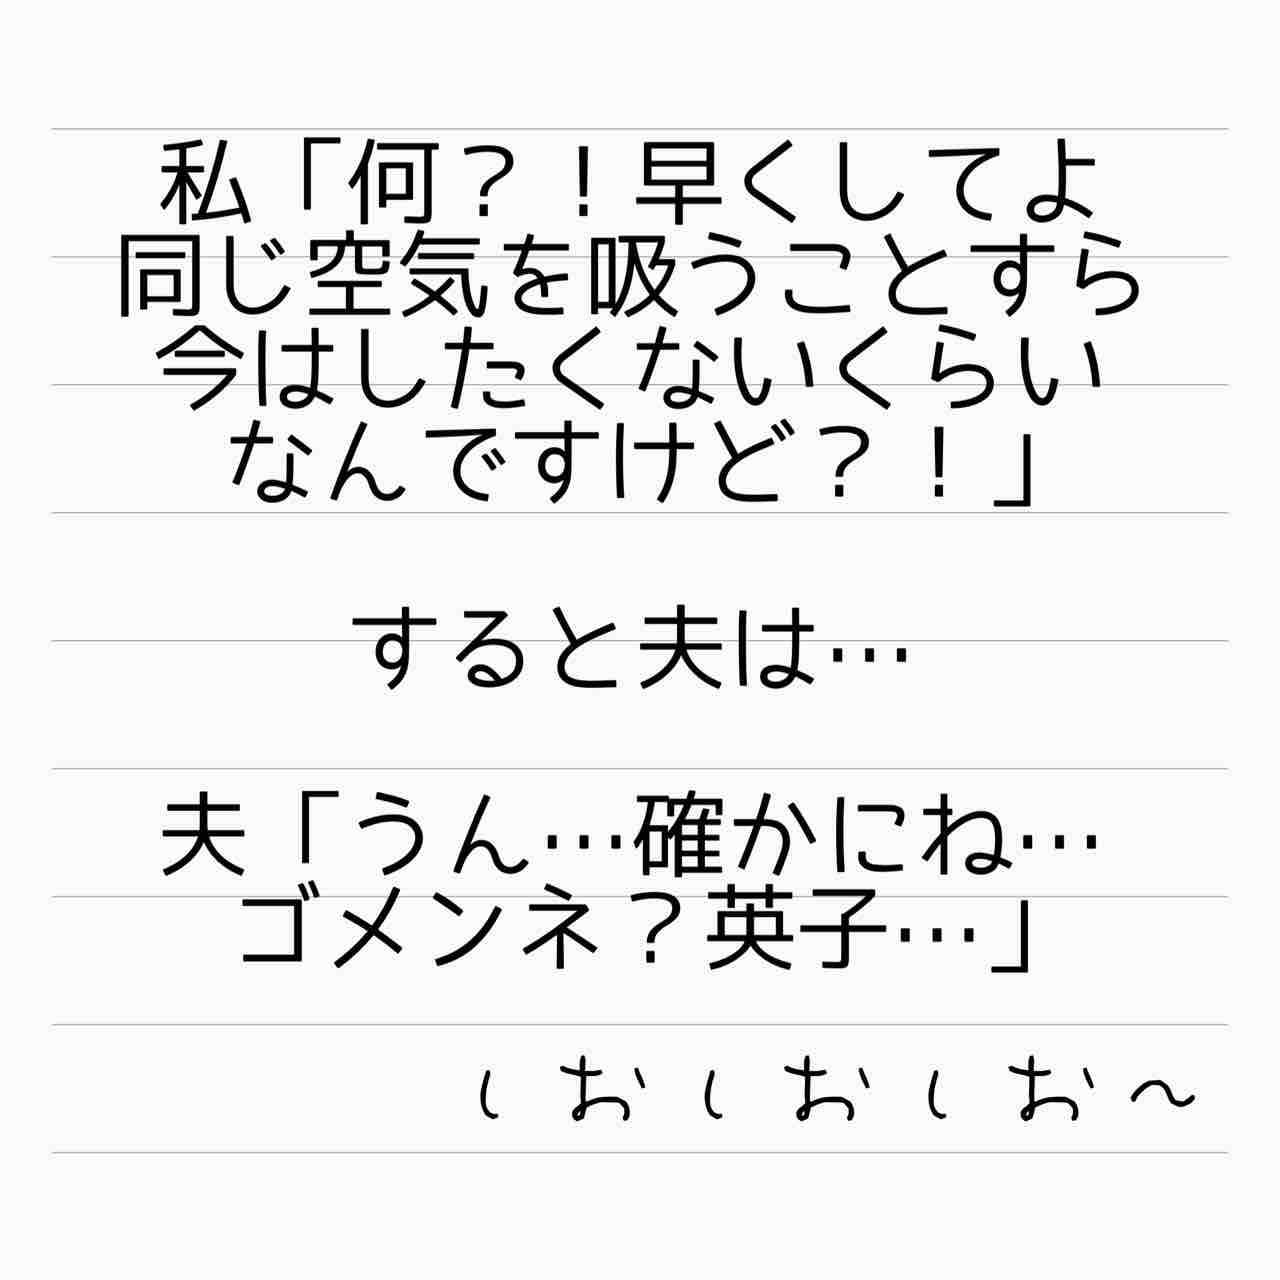 私「何？！早くしてよ
同じ空気を吸うことすら
今はしたくないくらい
なんですけど？！」
すると夫は…
夫「うん…確かにね…
ゴメンネ？英子…」
しおしおしお～